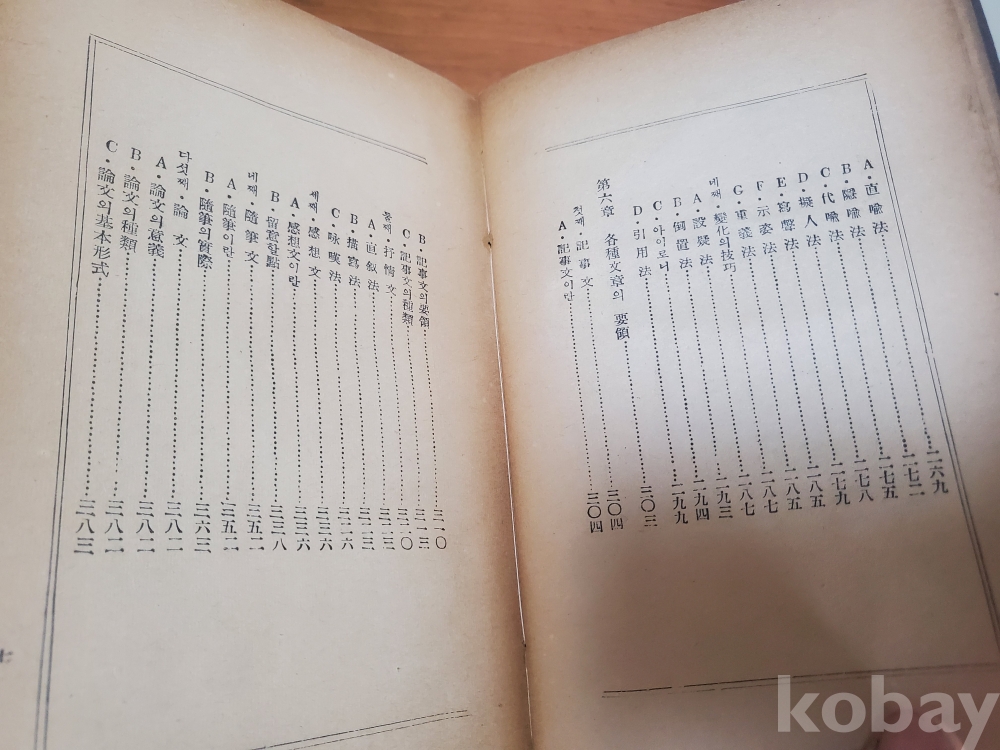 A·直喩法……二六九
B·隱喩法……二七二
C·代喩法……二七五
D·擬人法……二七八
E·寫聲法……二七九
F·示姿法……二八五
G·重義法……二八五
네째·變化의技巧……二八七
A·設疑法……二八七
B·倒置法……二九三
C·아이로니……二九四
D·引用法……二九九
三〇三
第六章 各種文章의 要領……三〇四
첫째·記事文
A·記事文이란……三〇四
B·記事文의要領……三一〇
C·記事文의種類……三一三
둘째·抒情文……三二〇
A·直敍法……三二三
B·描寫法……三二三
C·咏嘆法……三二六
세째·感想文……三三六
A·感想文이란……三三六
B·留意할點……三三八
네째·隨筆文……三五二
A·隨筆이란……三五二
B·隨筆의實際……三六三
다섯째·論文……三八二
A·論文의意義……三八二
B·論文의種類……三八二
C·論文의基本形式……三八三
七
kobay